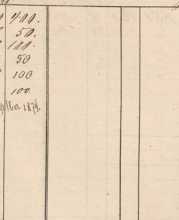 400.
50.
100.
50
100
100.
1874.